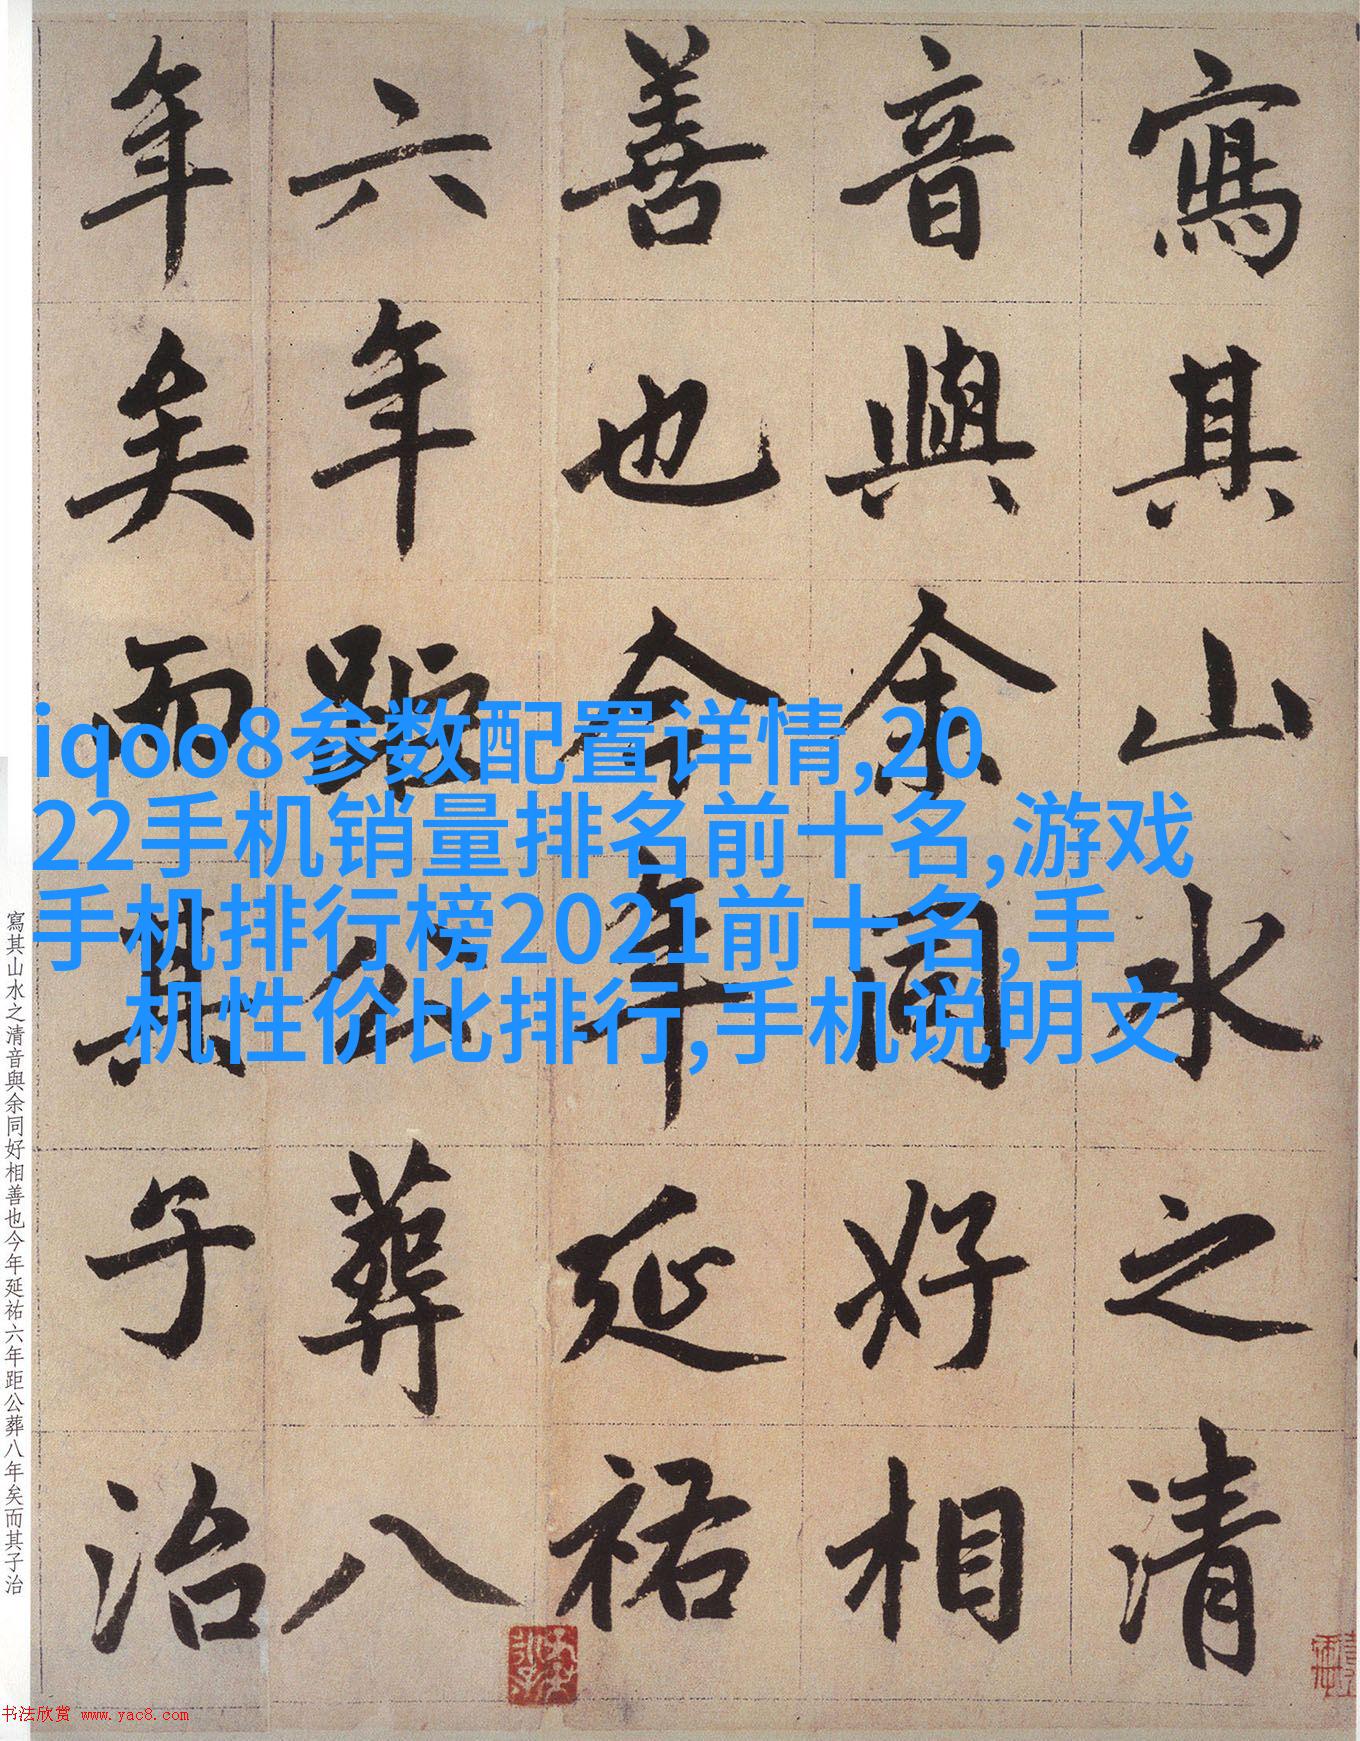 寫其山水之清
音與余同好相
善也今年延祐
六年距公葬八
年矣而其子治
iqoo8参数配置详情,20
22手机销量排名前十名,游戏
手机排行榜2021前十名,手
机性价比排行,手机说明文
寫其山水之清音與余同好相善也今年延祐六年距公葬八年矣而其子治
书法欣赏 www.yac8.com